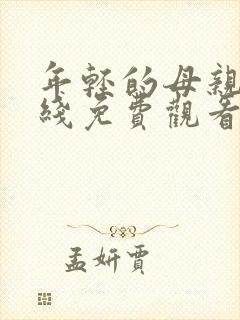 年轻的母親
綫免費觀看
孟妍賈